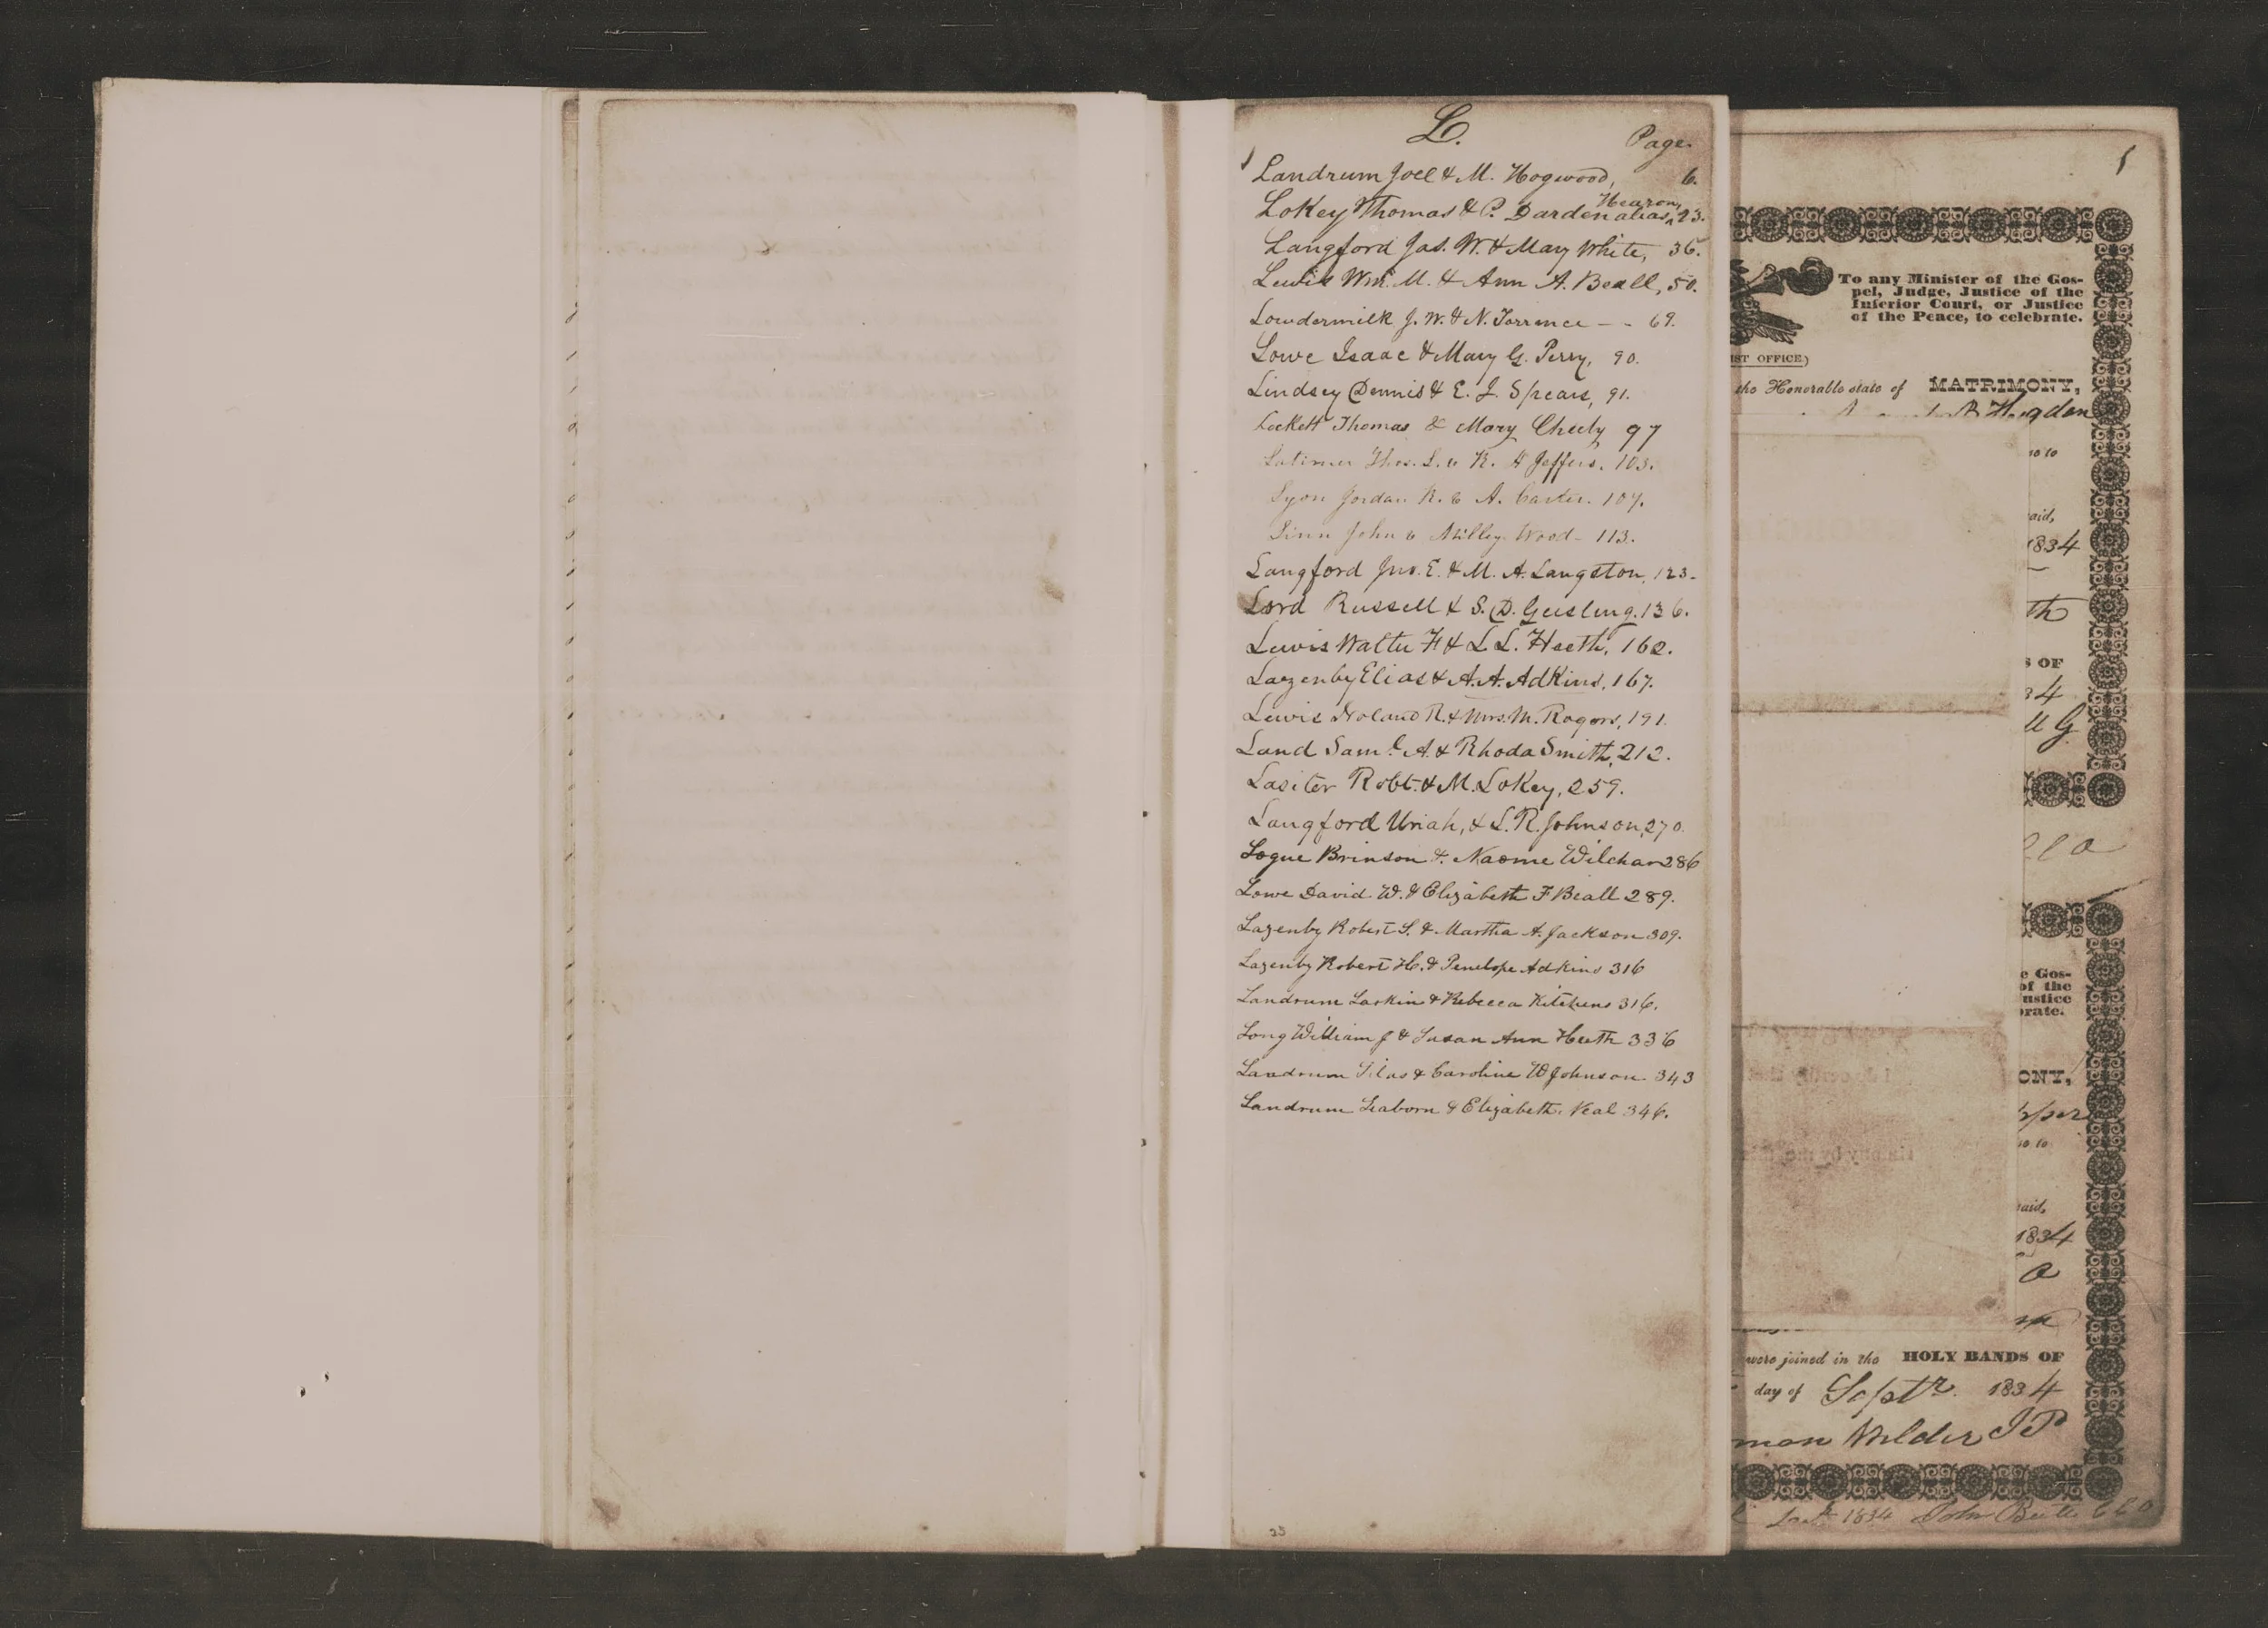 L.
Page.
Landrum Joel & M. Hogwood, 6.
Hearon,
Lokey Thomas & P. Darden alias^ 23.
Langford Jas. W. & Mary White, 36.
Lewis Wm. M. & Ann A. Beall, 50.
Lowdermilk J. W. & N. Torrence - - 69.
Lowe Isaac & Mary G. Perry, 90.
Lindsey Dennis & E. J. Spears, 91.
Lockett Thomas & Mary Cheely 97
Latimer Thos. L. & R. H Jeffers. 103.
Lyon Jordan R. & A. Carter. 107.
Linn John & Milley Wood - 113.
Langford Jno. E. & M. A. Langston, 123.
Lord Russell & S. D. Geesling. 136.
Lewis Walter F & L L. Heeth, 162.
Lazenby Elias & A. A. Adkins, 167.
Lewis Noland R. & Mrs. M. Rogers, 191.
Land Saml. A. & Rhoda Smith, 212.
Lasiter Robt. & M. Lokey, 259.
Langford Uriah, & L. R. Johnson, 270.
Logue Brinson & Naome Wilchar 286
Lowe David W. & Elizabeth F Beall 289.
Lazenby Robert S. & Martha A. Jackson 309.
Lazenby Robert H. & Penelope Adkins 316
Landrum Larkin & Rebecca Kitchens 316.
Long William J & Susan Ann Heeth 336
Landrum Silas & Caroline W Johnson. 343
Landrum Seaborn & Elizabeth. Veal 346.
23
1
To any Minister of the Gos-
pel, Judge, Justice of the
Inferior Court, or Justice
of the Peace, to celebrate.
ST OFFICE)
the Honorable state of MATRIMONY,
B Hogden
so to
aid,
1834
th
S OF
34
ll G
e Gos-
of the
ustice
orate.
ONY,
pper
so to
aid,
1834
were joined in the HOLY BANDS OF
day of Septr. 1834
mon Wilder JP
1834 John